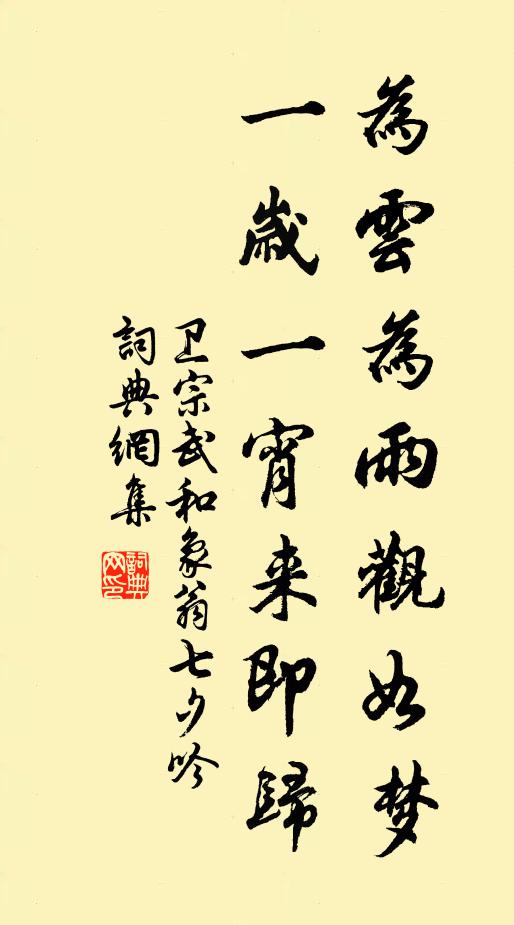 為雲為雨觀如梦
一歲一宵来即歸
卫宗武和象翁七夕吟
詞典網集
詞典網印